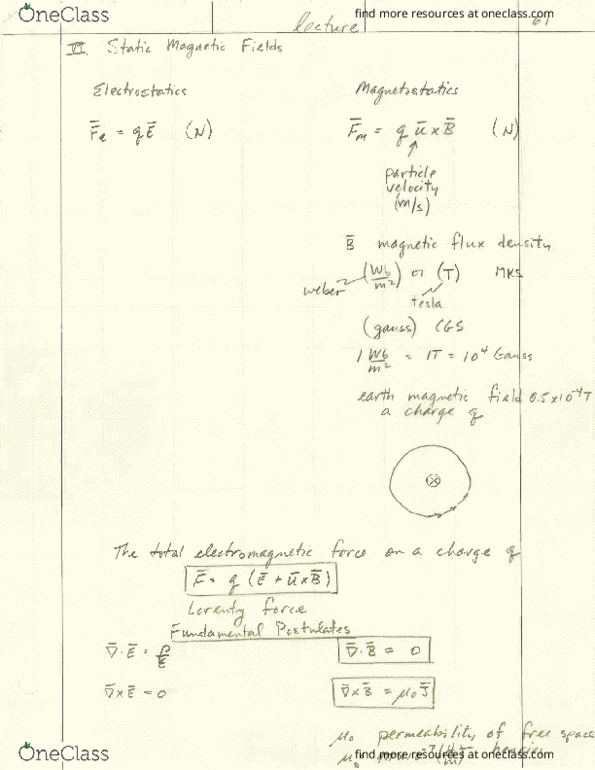 OneClass
find more resources at oneclass.com
lecture
61
VI. Static Magnetic Fields
Electrostatics
Magnetostatics
F̄e = qĒ (N)
F̄m = q ū × B̄ (N)
↑
particle
velocity
(m/s)
B̄ magnetic flux density
weber (Wb/m²) or (T) MKS
tesla
(gauss) CGS
1 Wb/m² = 1T = 10⁴ Gauss
earth magnetic field 0.5×10⁻⁴T
a charge q
⊗
The total electromagnetic force on a charge q
F̄ = q (Ē + ū×B̄)
Lorentz force
Fundamental Postulates
∇̄·Ē = ρ/ε
∇̄·B̄ = 0
∇̄×Ē = 0
∇̄×B̄ = μ₀J̄
μ₀ permeability of free space
μ₀
OneClass
find more resources at oneclass.com